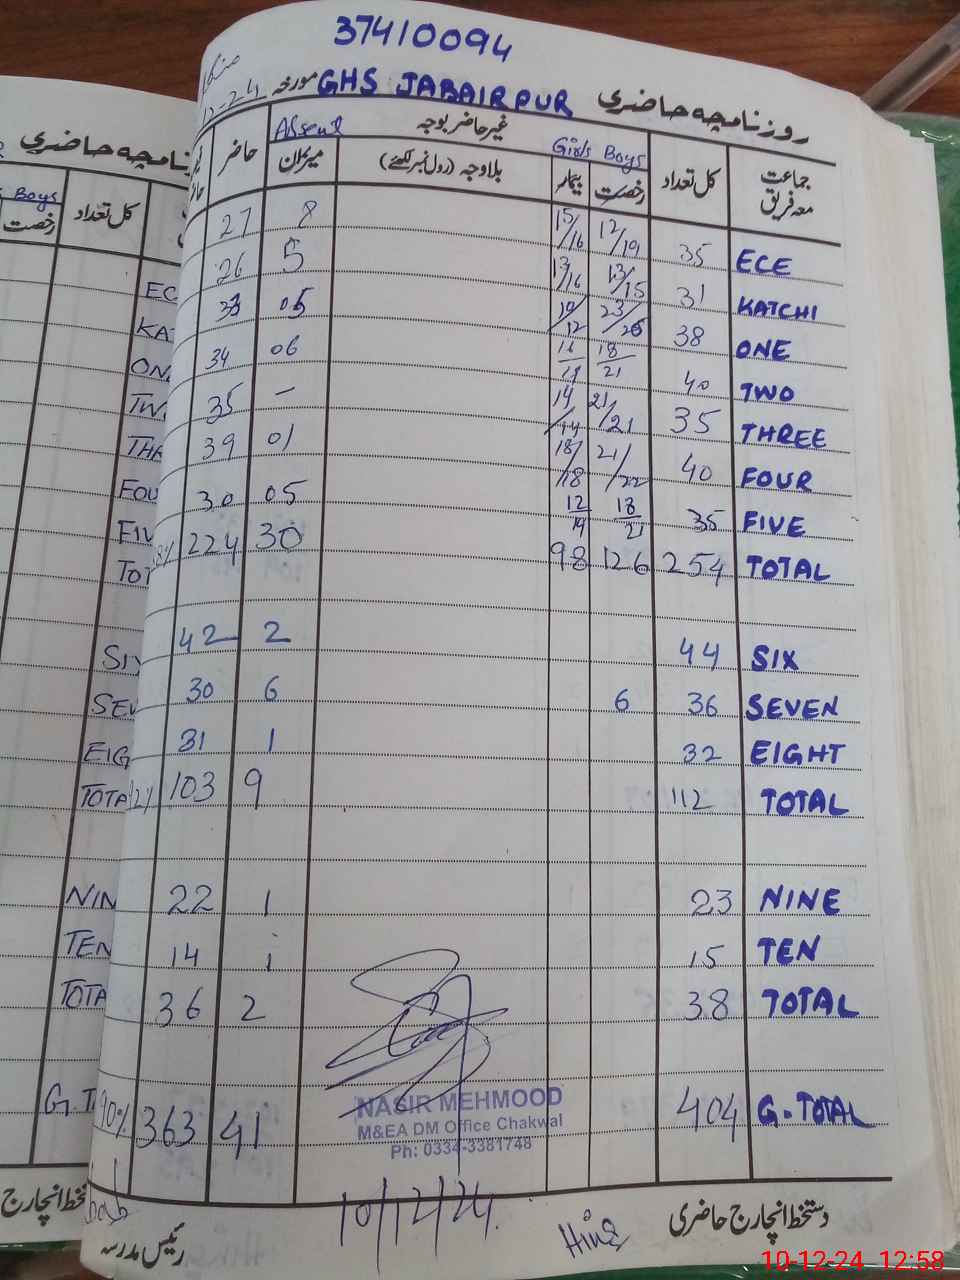 37410094
GHS JABAIRPUR
روزنامچہ حاضری
مورخہ
جماعت معہ فریق کل تعداد Boys رخصت Girls بیمار غیر حاضر بوجہ بلاوجہ (رول نمبر لکھئے) Absent میزان حاضر
ECE 35 12/19 15/16 8 27
KATCHI 31 13/15 13/16 5 26
ONE 38 23/ 05 33
TWO 40 18/21 06 34
THREE 35 21/21 14/14 - 35
FOUR 40 21/22 18/18 01 39
FIVE 35 18/21 12/14 05 30
TOTAL 254 126 98 30 224
SIX 44 2 42
SEVEN 36 6 6 30
EIGHT 32 1 31
TOTAL 112 9 103
NINE 23 1 22
TEN 15 1 14
TOTAL 38 2 36
G-TOTAL 404 41 363 90%
NASIR MEHMOOD
M&EA DM Office Chakwal
Ph: 0334-3381748
10/12/24
دستخط انچارج حاضری
Hina
رئیس مدرسہ
روزنامچہ حاضری
Boys
رخصت
کل تعداد
EC
KAT
ON
TW
THR
FOU
FIV
TOT
SIX
SEV
EIG
TOTA
NIN
TEN
TOTA
G.T
دستخط انچارج
10-12-24 12:58